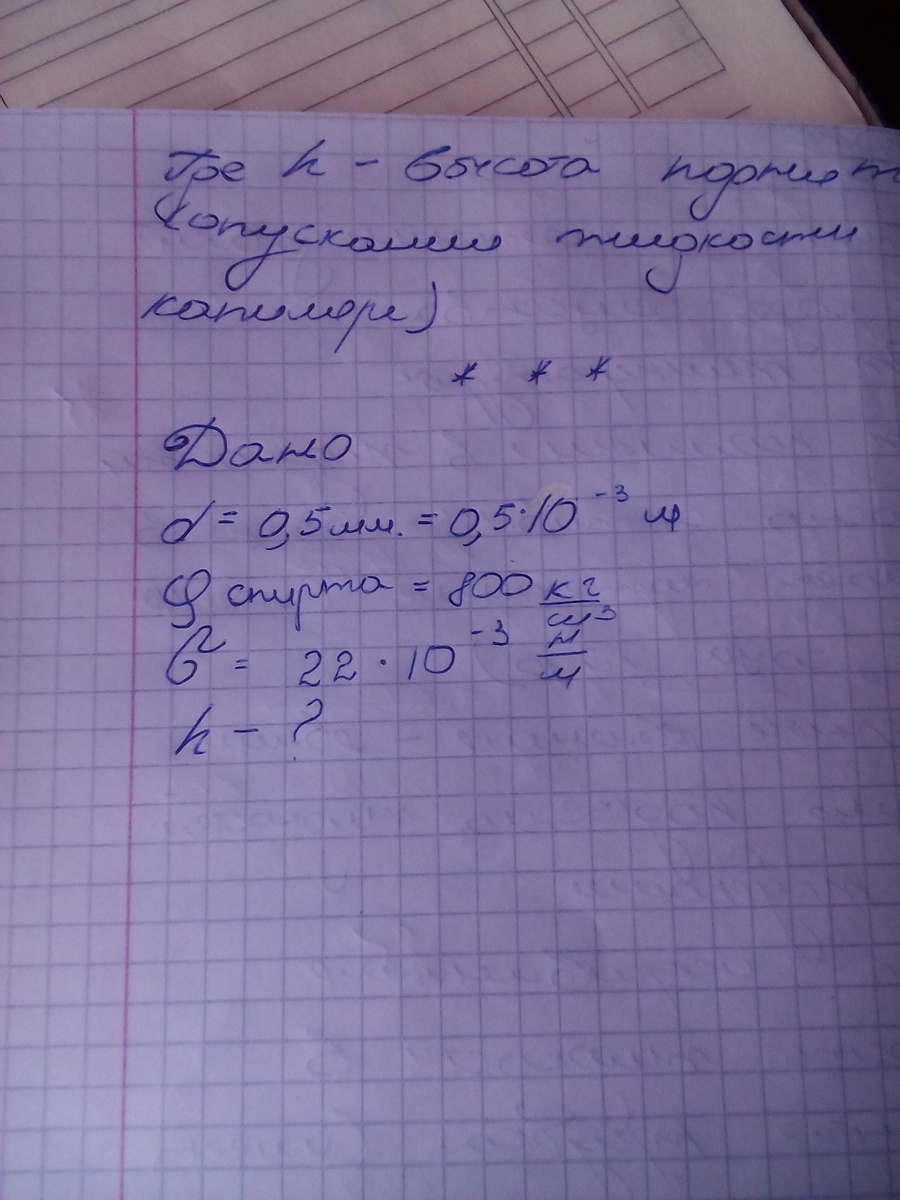 Где h - высота поднят
(опускании жидкости
капиляре)
* * *
Дано
d = 0,5 мм. = 0,5·10⁻³ м
ρ спирта = 800 кг/м³
σ = 22 · 10⁻³ н/м
h - ?